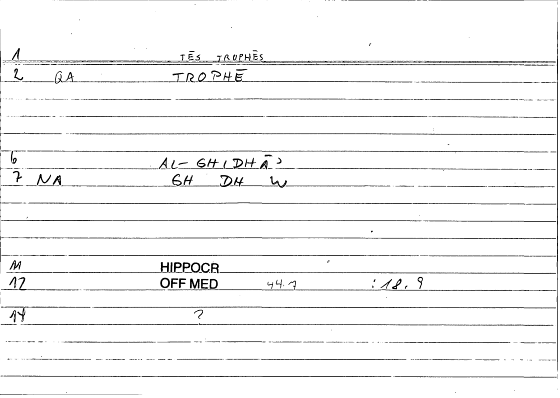 1 TĒS TROPHĒS
2 QA TROPHĒ
6 AL-GHIDHĀʾ
7 NA GH DH W
11 HIPPOCR
12 OFF MED 44.7 :18.9
14 ?